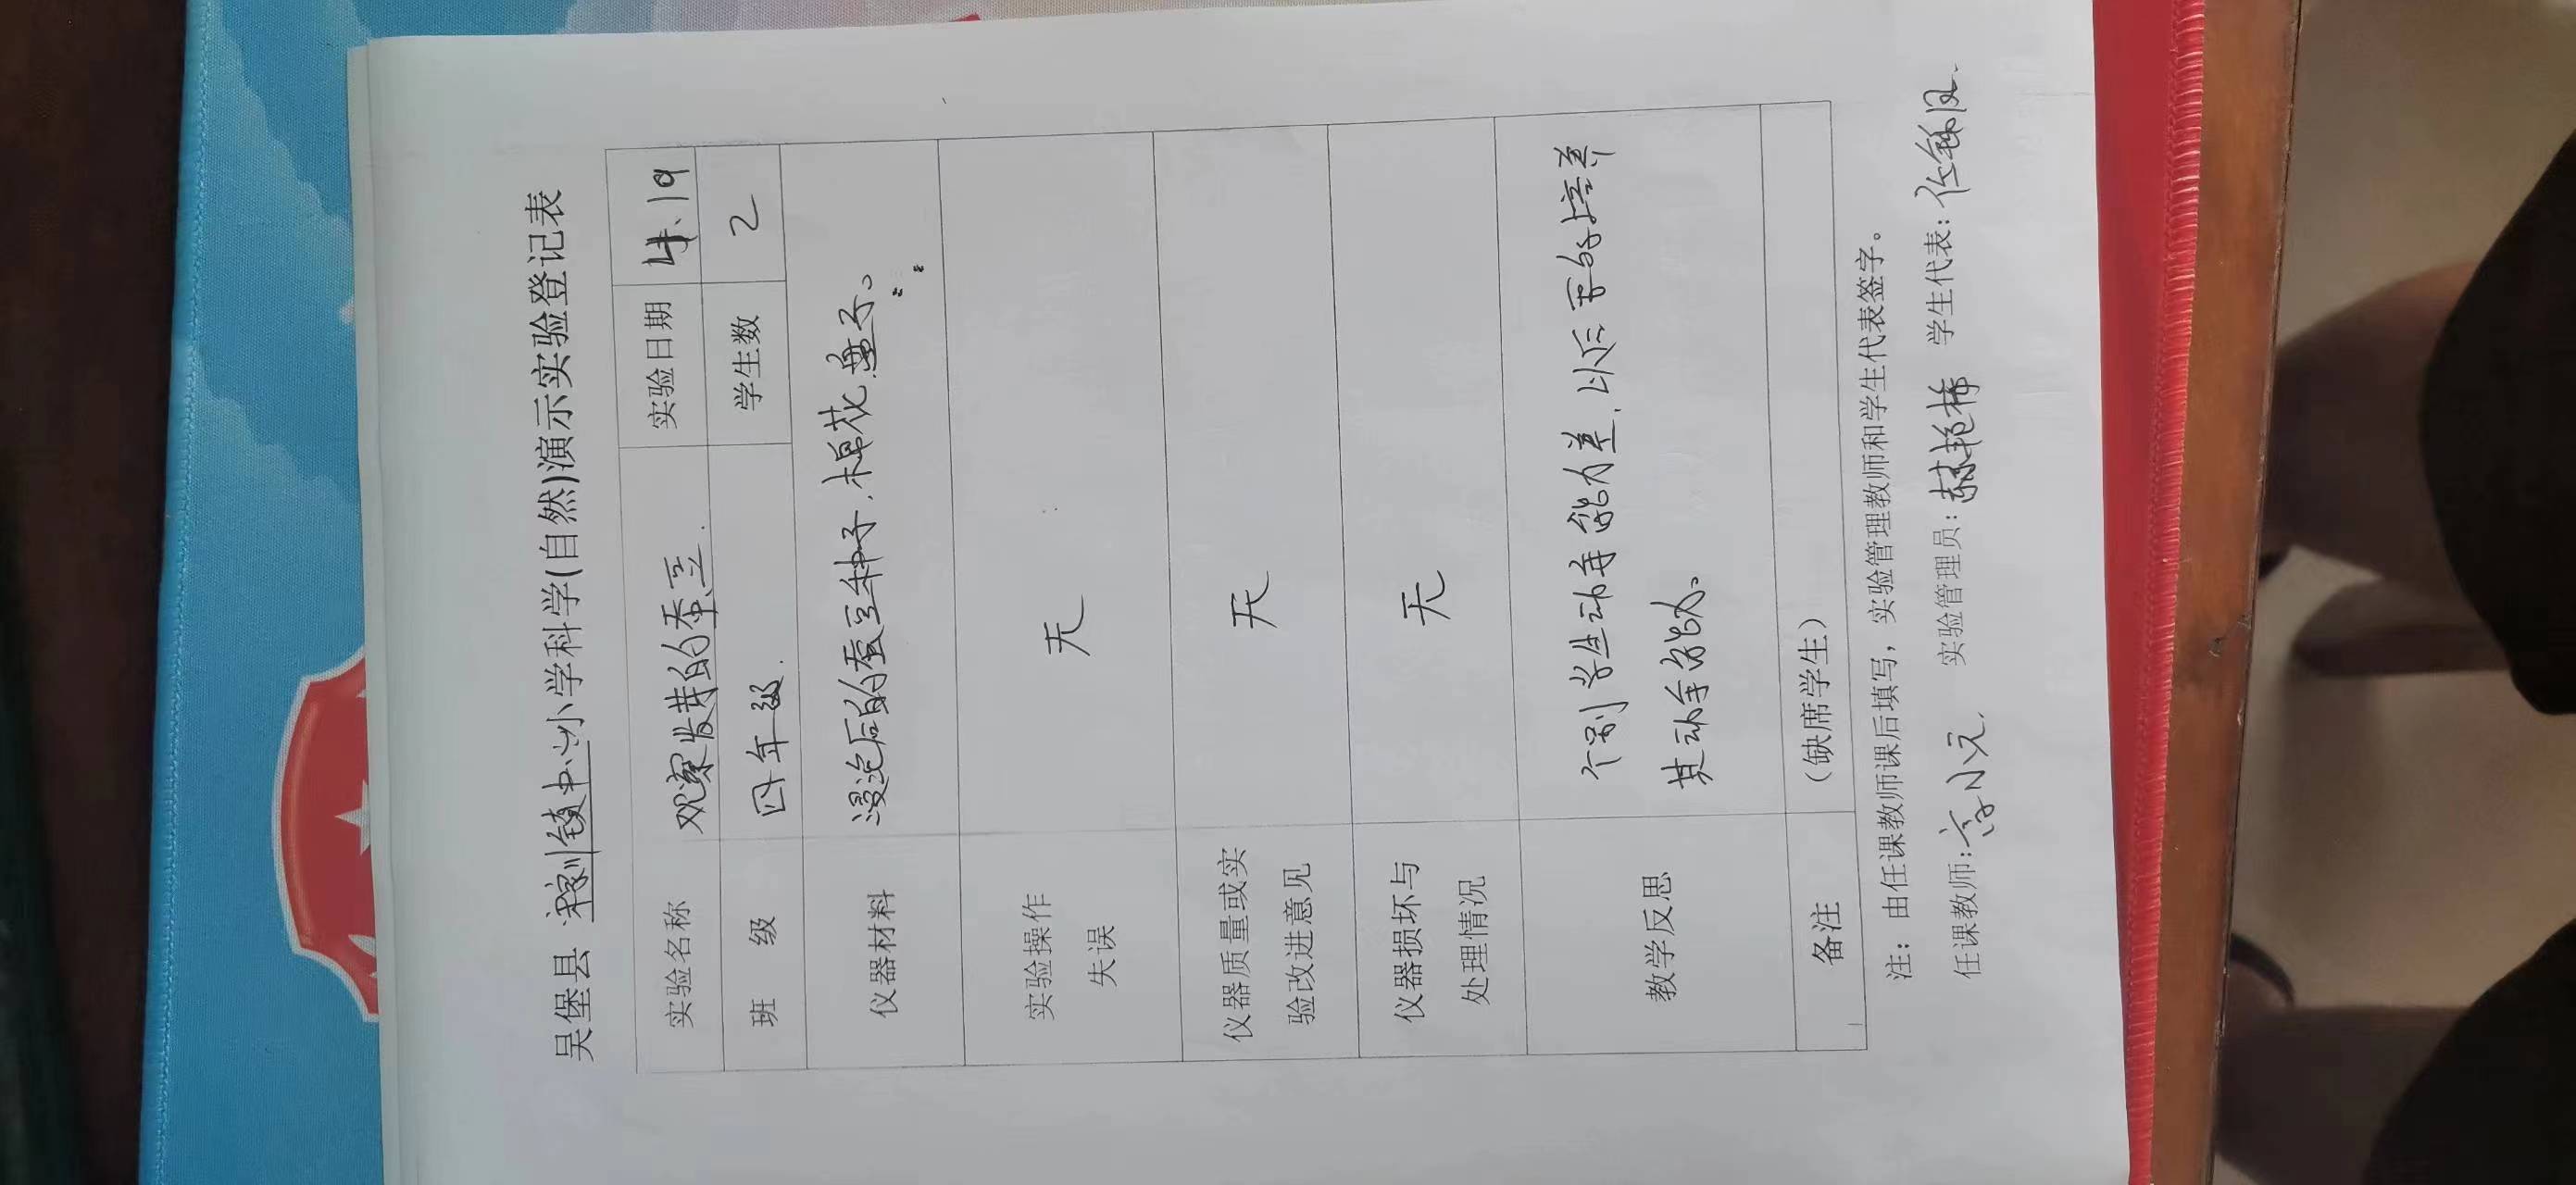 吴堡县 寇家塬镇中心小学科学(自然)演示实验登记表
实验名称 观察发芽的蚕豆. 实验日期 4.19
班 级 四年级. 学生数 2
仪器材料 浸泡后的蚕豆种子.棉花.盘子。
实验操作
失误 无
仪器质量或实
验改进意见 无
仪器损坏与
处理情况 无
教学反思 个别学生动手能力差.以后要多培养
其动手能力。
备注 (缺席学生)
注: 由任课教师课后填写, 实验管理教师和学生代表签字。
任课教师: 实验管理员: 学生代表: